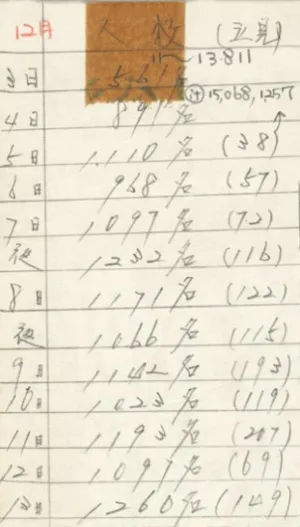 12月 人数 (立見)
13.811
3日 561名
計 15,068,1257
4日 891名
5日 1.110名 (38)
6日 968名 (57)
7日 1097名 (72)
夜 1232名 (116)
8日 1171名 (122)
夜 1066名 (115)
9日 1142名 (193)
10日 1023名 (119)
11日 1193名 (207)
12日 1097名 (69)
13日 1260名 (149)